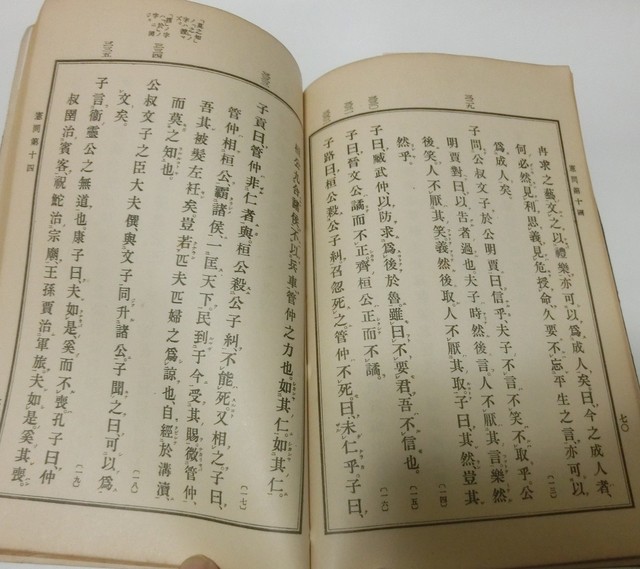 憲問第十四
七〇
冉求之藝、文之以禮樂、亦可以爲成人矣、曰、今之成人者、
何必然、見利思義、見危授命、久要不忘平生之言、亦可以
爲成人矣、
子問公叔文子於公明賈曰、信乎、夫子不言、不笑、不取乎、公
明賈對曰、以告者過也、夫子時然後言、人不厭其言、樂然
後笑、人不厭其笑、義然後取、人不厭其取、子曰、其然、豈其
然乎、
子曰、臧武仲以防求爲後於魯、雖曰不要君、吾不信也、
子曰、晉文公譎而不正、齊桓公正而不譎、
子路曰、桓公殺公子糾、召忽死之、管仲不死、曰、未仁乎、子曰、
桓公九合諸侯、不以兵車、管仲之力也、如其仁、如其仁、
子貢曰、管仲非仁者與、桓公殺公子糾、不能死、又相之、子曰、
管仲相桓公、霸諸侯、一匡天下、民到于今受其賜、微管仲、
吾其被髮左衽矣、豈若匹夫匹婦之爲諒也、自經於溝瀆、
而莫之知也、
公叔文子之臣大夫僎、與文子同升諸公、子聞之曰、可以爲
文矣、
子言衞靈公之無道也、康子曰、夫如是、奚而不喪、孔子曰、仲
叔圉治賓客、祝鮀治宗廟、王孫賈治軍旅、夫如是、奚其喪、
憲問第十四